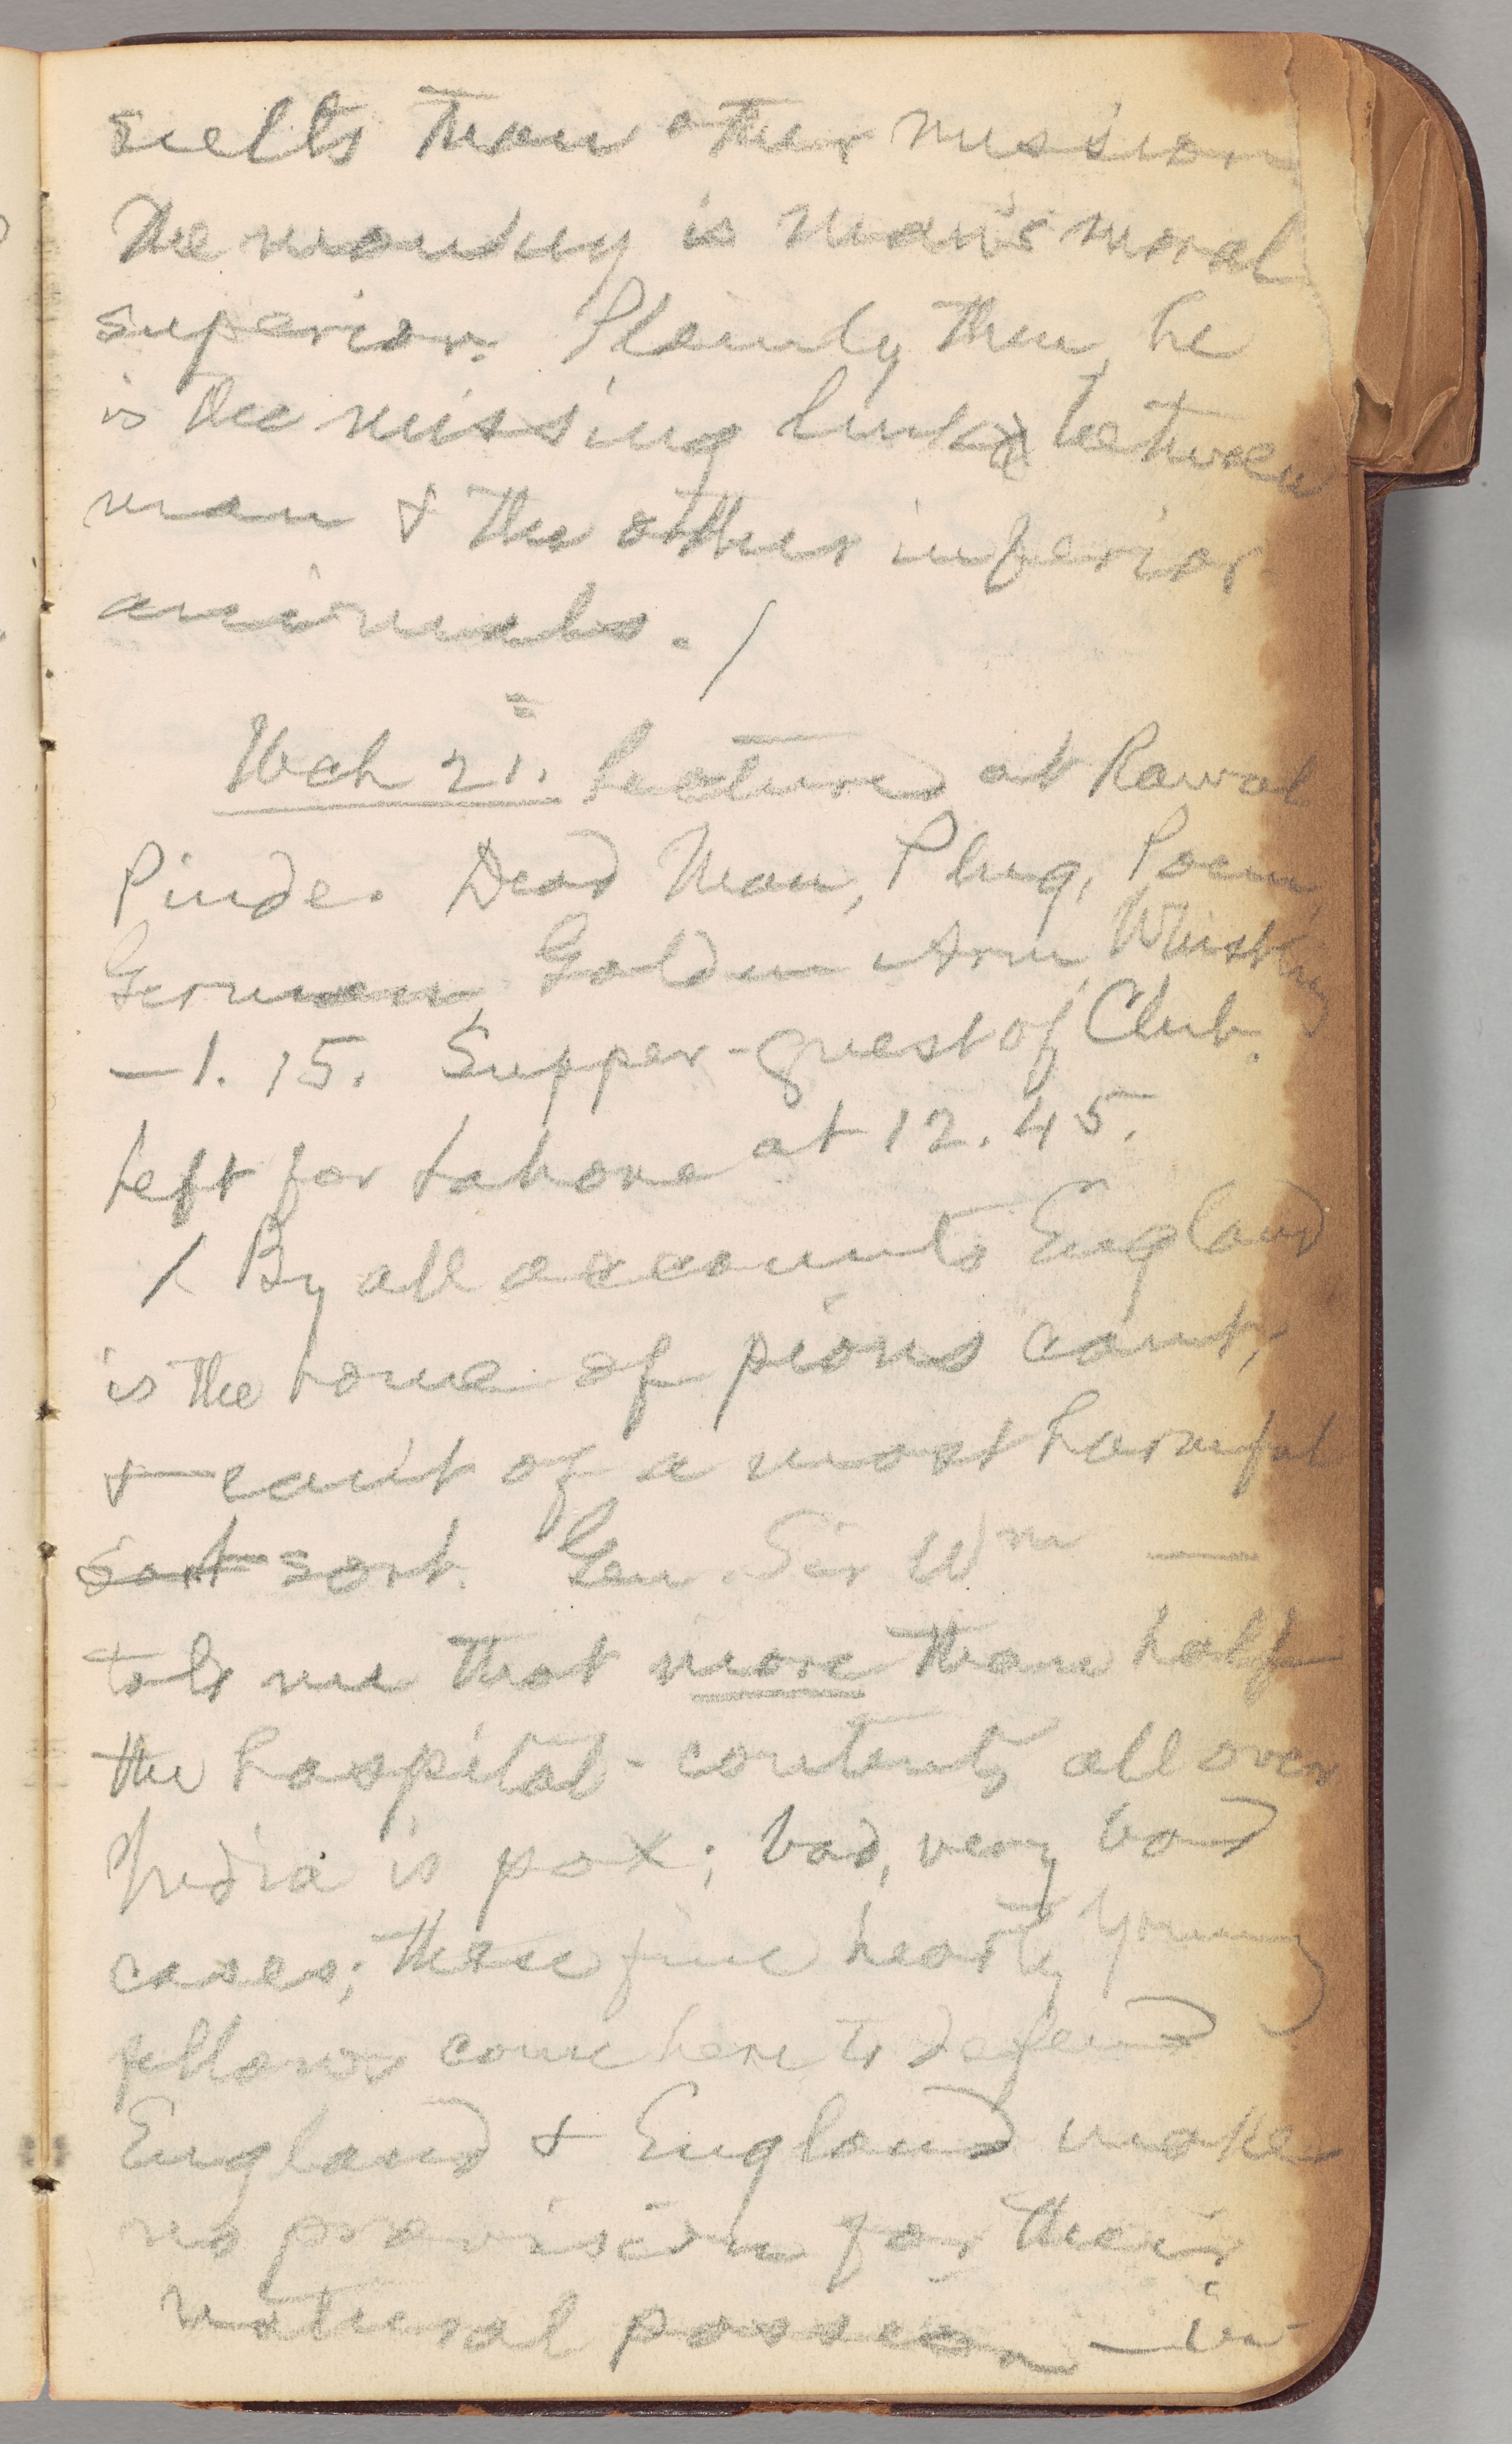 sults than other mission
The monkey is man's moral
superior. Plainly, then, he
is the missing link between
man & the other inferior
animals. /
=
Mch 21. Lectured at Rawal
Pinde. Dead Man, Plug, Poem,
German, Golden Arm, Whistling
—1.15. Supper-guest of Club.
Left for Lahore at 12.45.
/ By all accounts England
is the home of pious cant;
& cant of a most harmful
sort sort. Gen. Sir Wm —
told me that more than half
the hospital-contents all over
India is pox; bad, very bad
cases; these fine hearty young
fellows come here to defend
England & England makes
no provision for their
natural passion — in